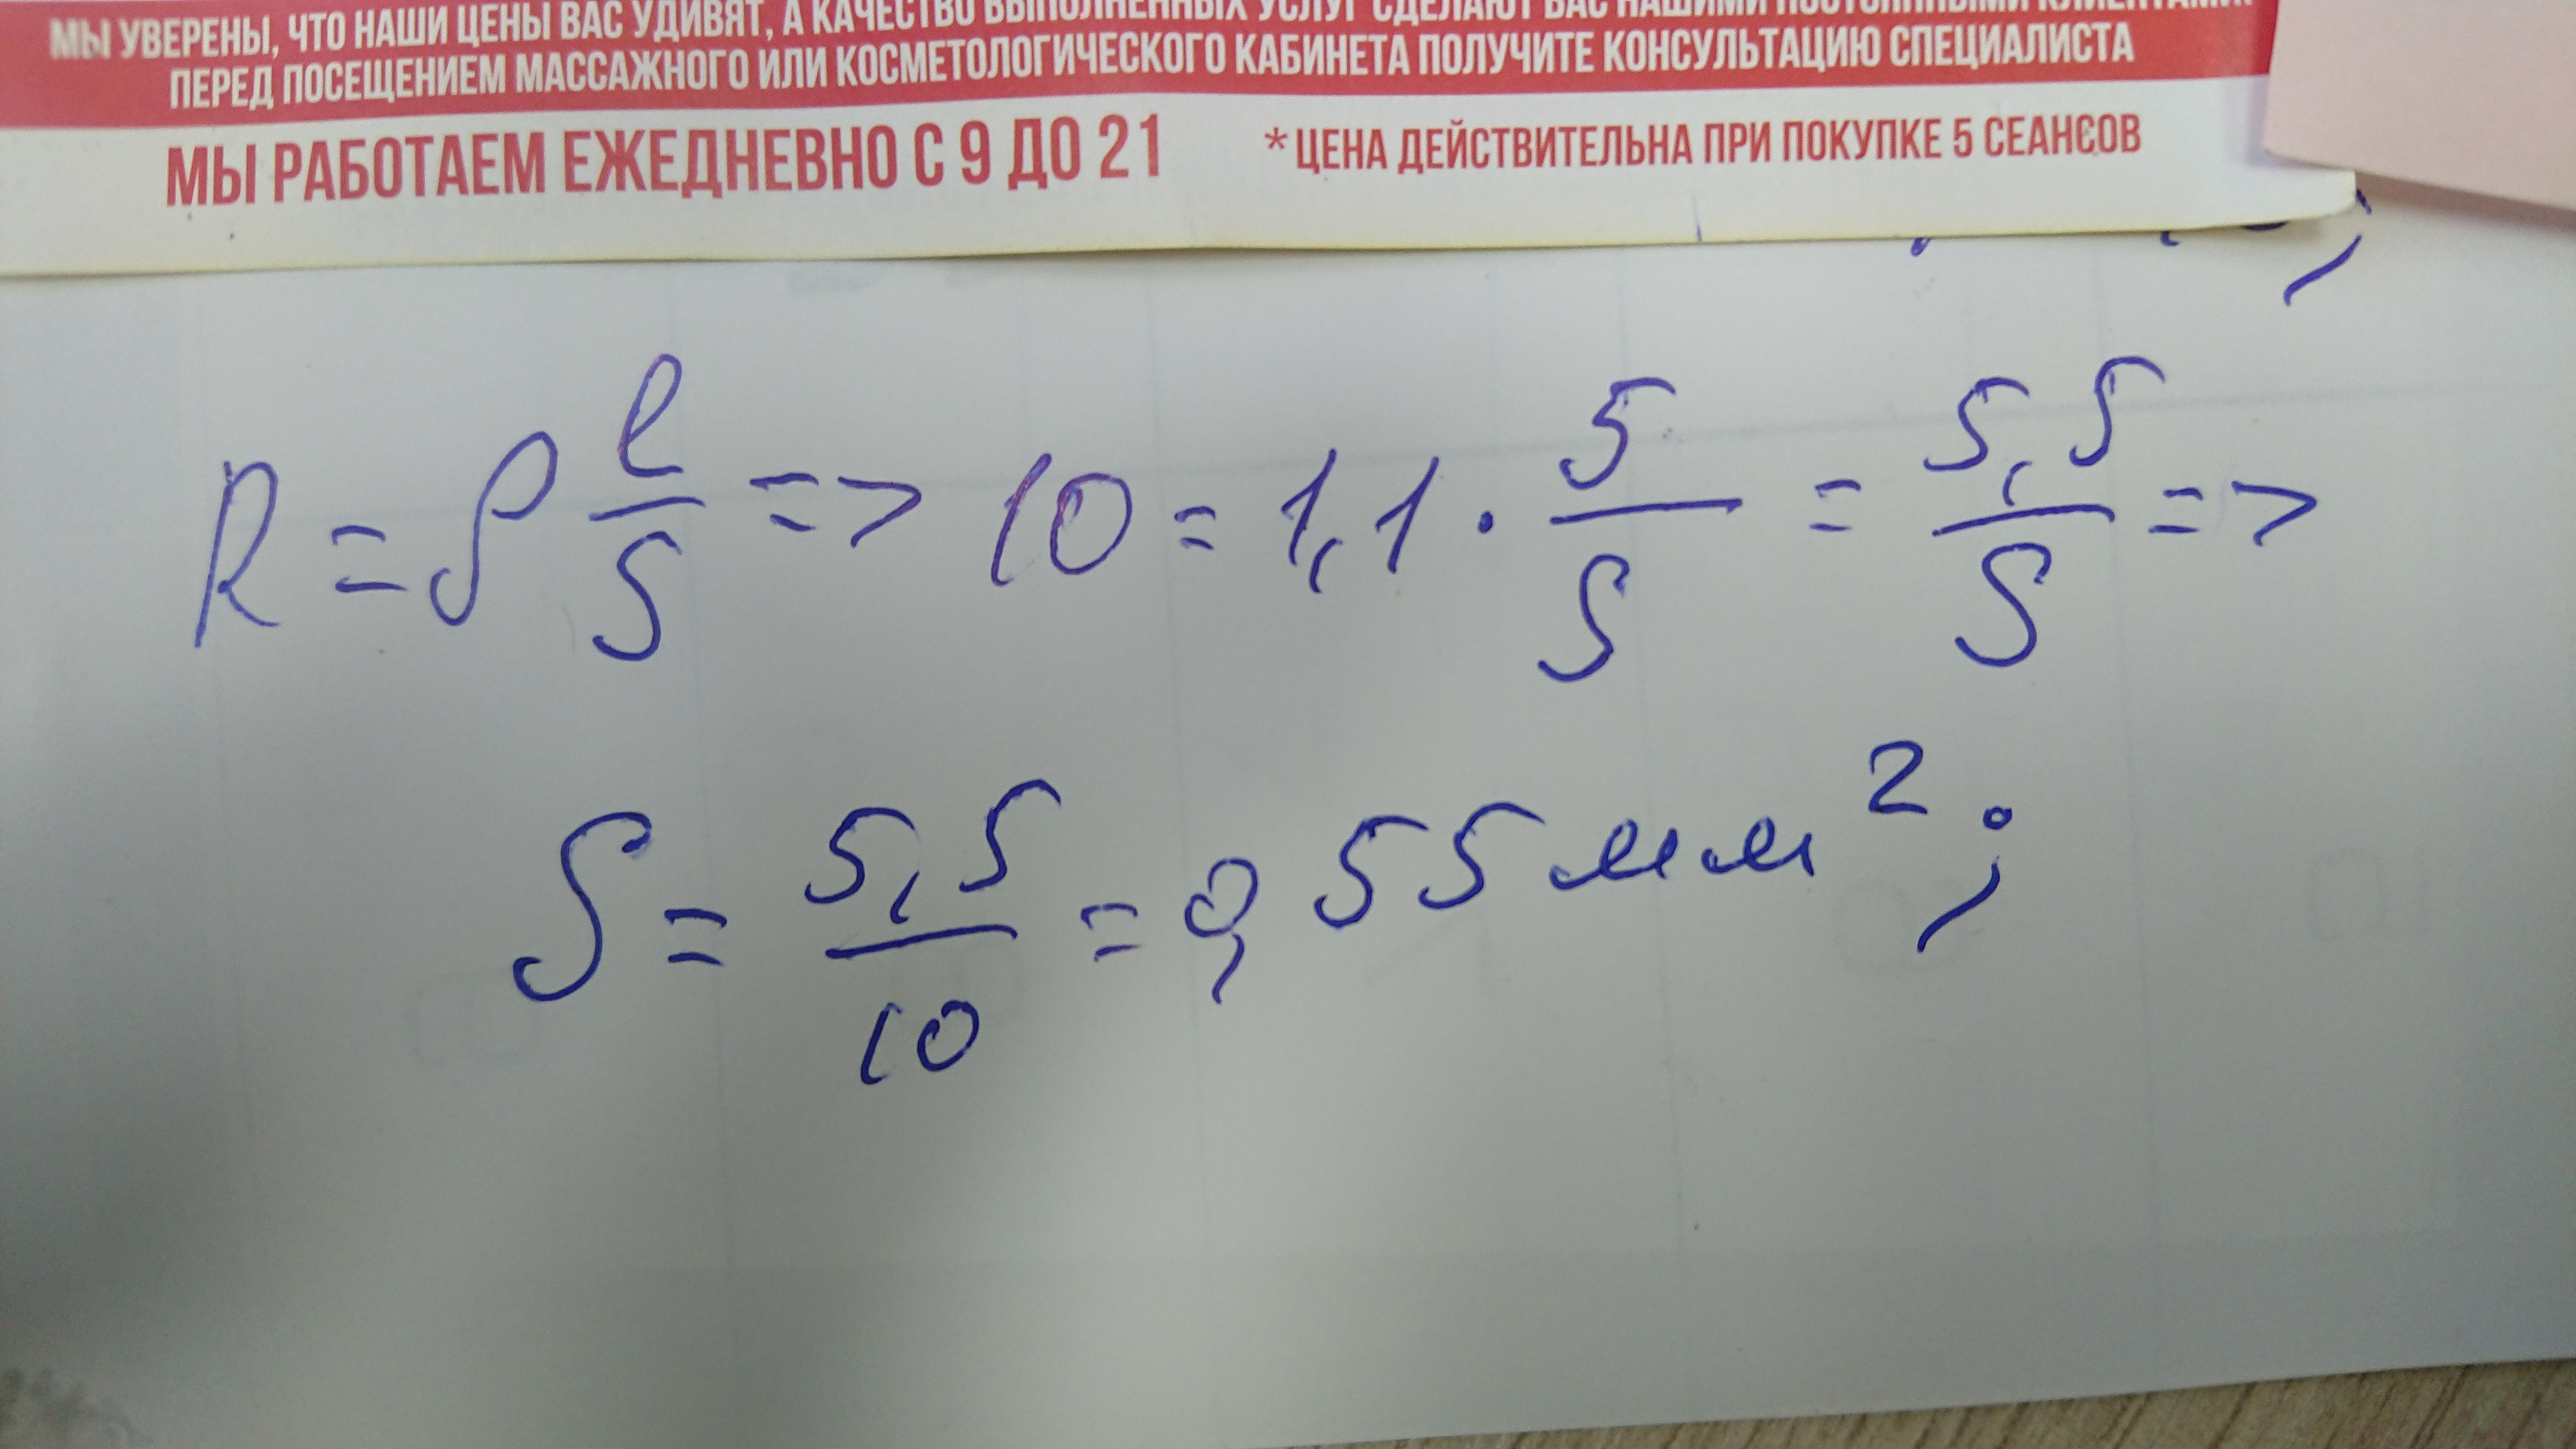 МЫ УВЕРЕНЫ, ЧТО НАШИ ЦЕНЫ ВАС УДИВЯТ, А КАЧЕСТВО ВЫПОЛНЕННЫХ УСЛУГ СДЕЛАЮТ ВАС НАШИМИ ПОСТОЯННЫМИ КЛИЕНТАМИ.
ПЕРЕД ПОСЕЩЕНИЕМ МАССАЖНОГО ИЛИ КОСМЕТОЛОГИЧЕСКОГО КАБИНЕТА ПОЛУЧИТЕ КОНСУЛЬТАЦИЮ СПЕЦИАЛИСТА
МЫ РАБОТАЕМ ЕЖЕДНЕВНО С 9 ДО 21 *ЦЕНА ДЕЙСТВИТЕЛЬНА ПРИ ПОКУПКЕ 5 СЕАНСОВ
R = ρ l/S => 10 = 1,1 · 5/S = 5,5/S =>
S = 5,5/10 = 0,55 мм²;